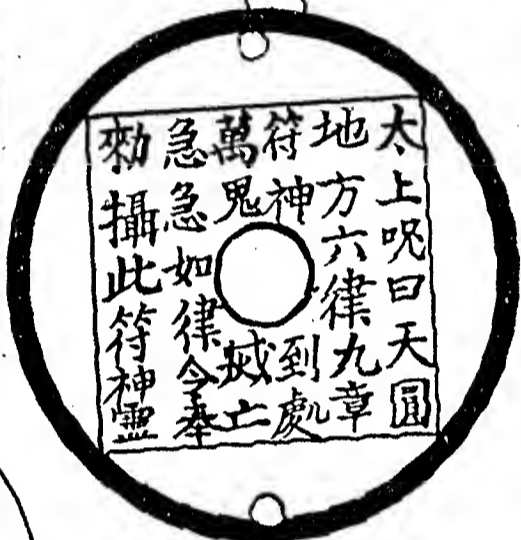 太上呪曰天圓
地方六律九章
符神到處
萬鬼滅亡
急急如律令奉
勑攝此符神靈